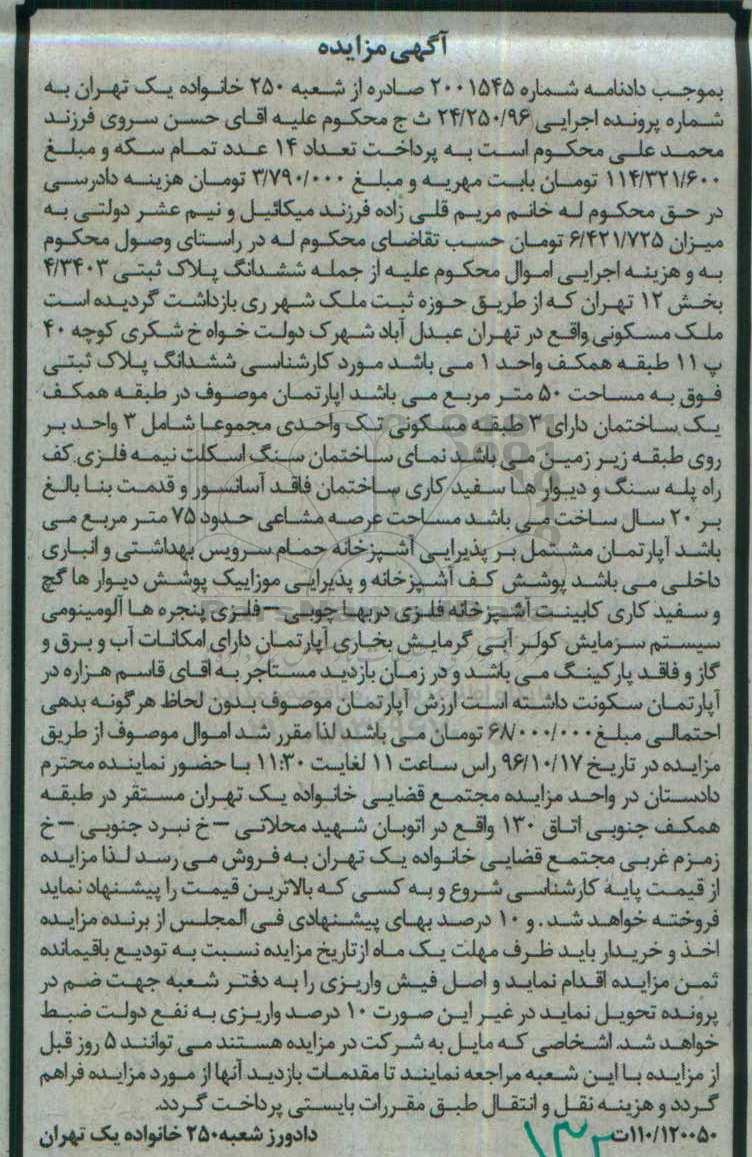 آگهی مزایده
بموجب دادنامه شماره ۲۰۰۱۵۴۵ صادره از شعبه ۲۵۰ خانواده یک تهران به
شماره پرونده اجرایی ۲۴/۲۵۰/۹۶ ث ج محکوم علیه اقای حسن سروی فرزند
محمد علی محکوم است به پرداخت تعداد ۱۴ عدد تمام سکه و مبلغ
۱۱۴/۳۲۱/۶۰۰ تومان بابت مهریه و مبلغ ۳/۷۹۰/۰۰۰ تومان هزینه دادرسی
در حق محکوم له خانم مریم قلی زاده فرزند میکائیل و نیم عشر دولتی به
میزان ۶/۴۲۱/۷۲۵ تومان حسب تقاضای محکوم له در راستای وصول محکوم
به و هزینه اجرایی اموال محکوم علیه از جمله ششدانگ پلاک ثبتی ۴/۳۴۰۳
بخش ۱۲ تهران که از طریق حوزه ثبت ملک شهر ری بازداشت گردیده است
ملک مسکونی واقع در تهران عبدل آباد شهرک دولت خواه خ شکری کوچه ۴۰
پ ۱۱ طبقه همکف واحد ۱ می باشد مورد کارشناسی ششدانگ پلاک ثبتی
فوق به مساحت ۵۰ متر مربع می باشد اپارتمان موصوف در طبقه همکف
یک ساختمان دارای ۳ طبقه مسکونی تک واحدی مجموعا شامل ۳ واحد بر
روی طبقه زیر زمین می باشد نمای ساختمان سنگ اسکلت نیمه فلزی کف
راه پله سنگ و دیوار ها سفید کاری ساختمان فاقد آسانسور و قدمت بنا بالغ
بر ۲۰ سال ساخت می باشد مساحت عرصه مشاعی حدود ۷۵ متر مربع می
باشد آپارتمان مشتمل بر پذیرایی آشپزخانه حمام سرویس بهداشتی و انباری
داخلی می باشد پوشش کف آشپزخانه و پذیرایی موزاییک پوشش دیوار ها گچ
و سفید کاری کابینت آشپزخانه فلزی دربها چوبی – فلزی پنجره ها آلومینومی
سیستم سرمایش کولر آبی گرمایش بخاری آپارتمان دارای امکانات آب و برق و
گاز و فاقد پارکینگ می باشد و در زمان بازدید مستاجر به اقای قاسم هزاره در
آپارتمان سکونت داشته است ارزش آپارتمان موصوف بدون لحاظ هرگونه بدهی
احتمالی مبلغ ۶۸/۰۰۰/۰۰۰ تومان می باشد لذا مقرر شد اموال موصوف از طریق
مزایده در تاریخ ۹۶/۱۰/۱۷ راس ساعت ۱۱ لغایت ۱۱:۳۰ با حضور نماینده محترم
دادستان در واحد مزایده مجتمع قضایی خانواده یک تهران مستقر در طبقه
همکف جنوبی اتاق ۱۳۰ واقع در اتوبان شهید محلاتی – خ نبرد جنوبی – خ
زمزم غربی مجتمع قضایی خانواده یک تهران به فروش می رسد لذا مزایده
از قیمت پایه کارشناسی شروع و به کسی که بالاترین قیمت را پیشنهاد نماید
فروخته خواهد شد. و ۱۰ درصد بهای پیشنهادی فی المجلس از برنده مزایده
اخذ و خریدار باید ظرف مهلت یک ماه ازتاریخ مزایده نسبت به تودیع باقیمانده
ثمن مزایده اقدام نماید و اصل فیش واریزی را به دفتر شعبه جهت ضم در
پرونده تحویل نماید در غیر این صورت ۱۰ درصد واریزی به نفع دولت ضبط
خواهد شد. اشخاصی که مایل به شرکت در مزایده هستند می توانند ۵ روز قبل
از مزایده با این شعبه مراجعه نمایند تا مقدمات بازدید آنها از مورد مزایده فراهم
گردد و هزینه نقل و انتقال طبق مقررات بایستی پرداخت گردد.
۱۱۰/۱۲۰۰۵۰ت دادورز شعبه ۲۵۰ خانواده یک تهران